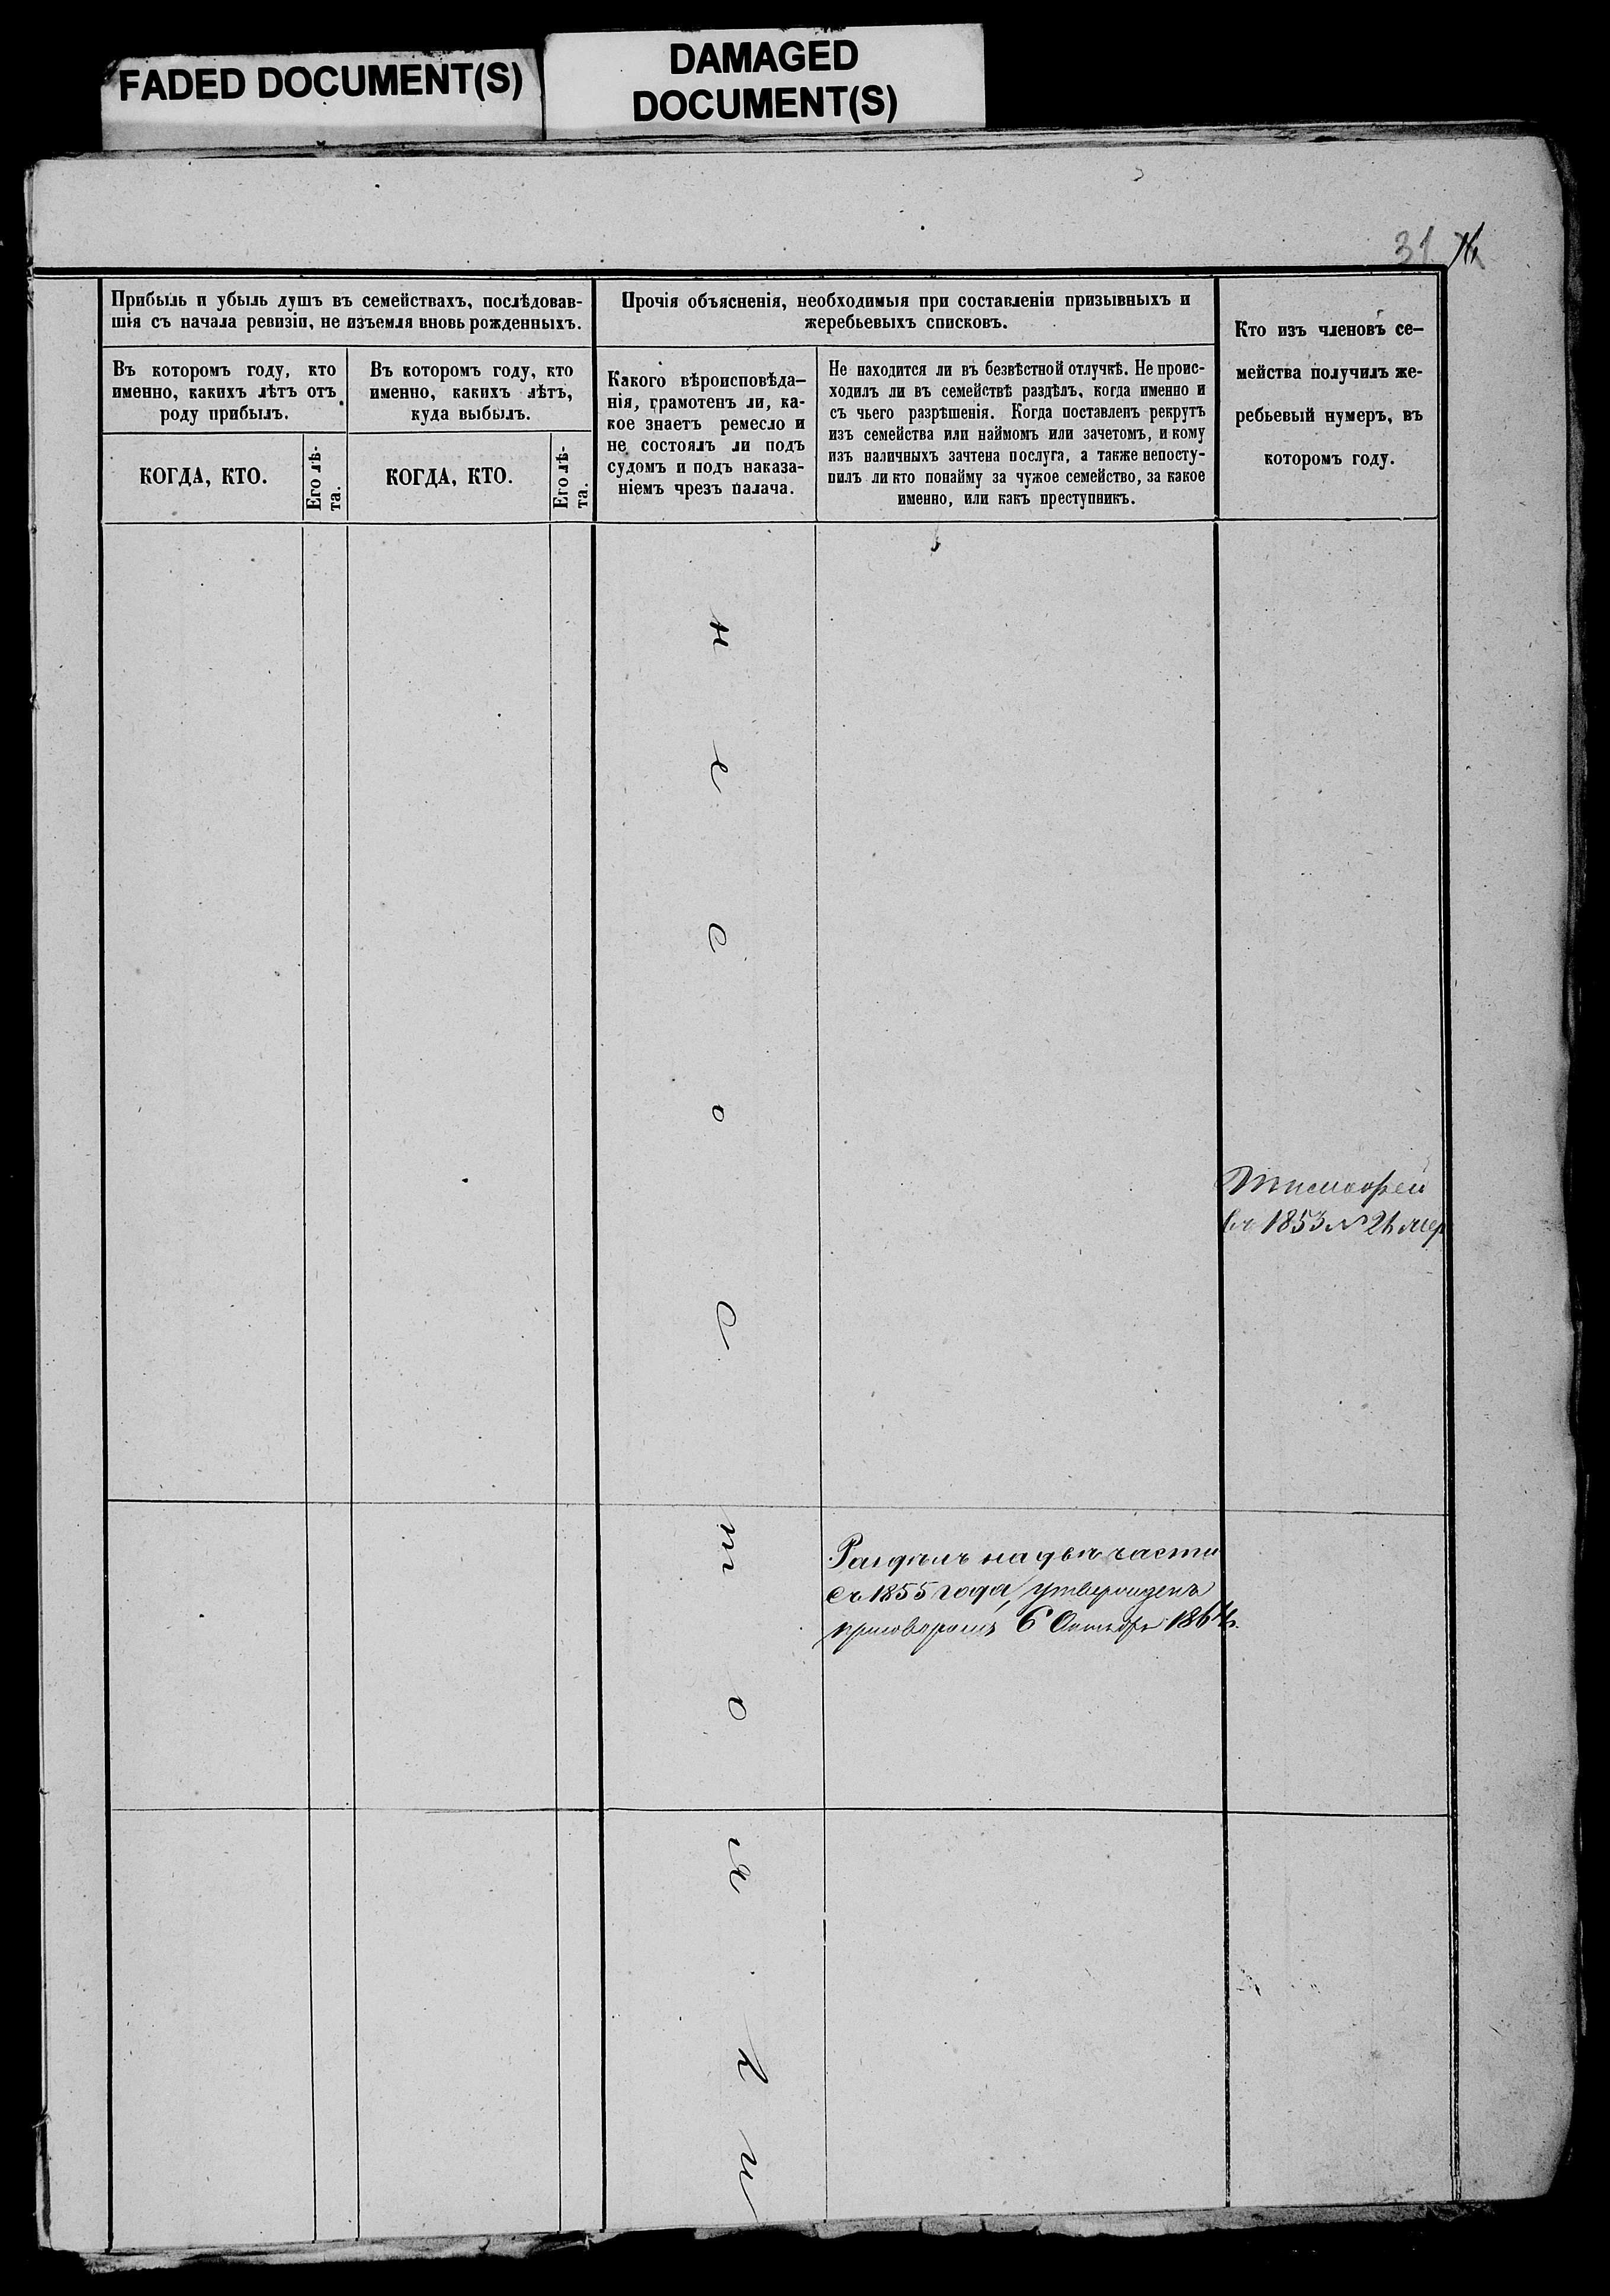 FADED DOCUMENT(S)
DAMAGED
DOCUMENT(S)
31
Прибыль и убыль душъ въ семействахъ, послѣдовав-
шія съ начала ревизіи, не изъемля вновь рожденныхъ.
Въ которомъ году, кто
именно, какихъ лѣтъ отъ
роду прибылъ.
КОГДА, КТО.
Его лѣ-
та.
Въ которомъ году, кто
именно, какихъ лѣтъ,
куда выбылъ.
КОГДА, КТО.
Его лѣ-
та.
Прочія объясненія, необходимыя при составленіи призывныхъ и
жеребьевыхъ списковъ.
Какого вѣроисповѣда-
нія, грамотенъ ли, ка-
кое знаетъ ремесло и
не состоялъ ли подъ
судомъ и подъ наказа-
ніемъ чрезъ палача.
Не находится ли въ безвѣстной отлучкѣ. Не проис-
ходилъ ли въ семействѣ раздѣлъ, когда именно и
съ чьего разрѣшенія. Когда поставленъ рекрутъ
изъ семейства или наймомъ или зачетомъ, и кому
изъ наличныхъ зачтена послуга, а также непосту-
пилъ ли кто понайму за чужое семейство, за какое
именно, или какъ преступникъ.
Кто изъ членовъ се-
мейства получилъ же-
ребьевый нумеръ, въ
которомъ году.
н
е
с
о
с
т
о
я
л
и
Тимофей
въ 1853 №
Раздѣлъ на двѣ части
съ 1855 года, утвержденъ
приговоромъ 6 Октября 1864